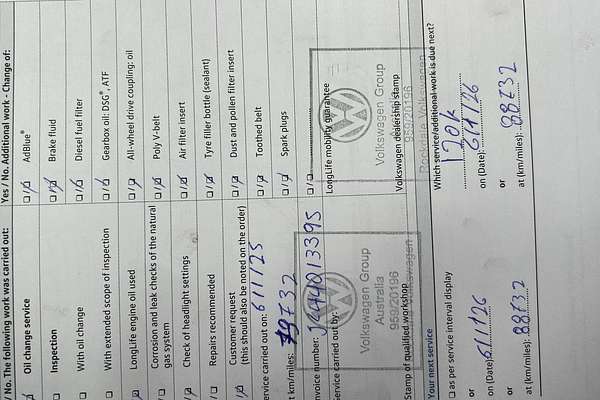 Yes / No. Additional work - Change of:
AdBlue®
Brake fluid
Diesel fuel filter
Gearbox oil: DSG®, ATF
All-wheel drive coupling: oil
Poly V-belt
Air filter insert
Tyre filler bottle (sealant)
Dust and pollen filter insert
Toothed belt
Spark plugs
LongLife mobility guarantee
Volkswagen Group
959/20196
Rockdale Volkswagen
Volkswagen dealership stamp
Which service/additional work is due next?
120K
on (Date): 6/1/26
or
at (km/miles): 88732
/ No. The following work was carried out:
Oil change service
Inspection
With oil change
With extended scope of inspection
LongLife engine oil used
Corrosion and leak checks of the natural
gas system
Check of headlight settings
Repairs recommended
Customer request
(this should also be noted on the order)
ervice carried out on: 6/1/25
t km/miles: 79732
nvoice number:
ervice carried out by:
Volkswagen Group
Australia
959/20196
Volkswagen
Stamp of qualified workshop
Your next service
as per service interval display
or
on (Date): 6/1/26
or
at (km/miles): 88732